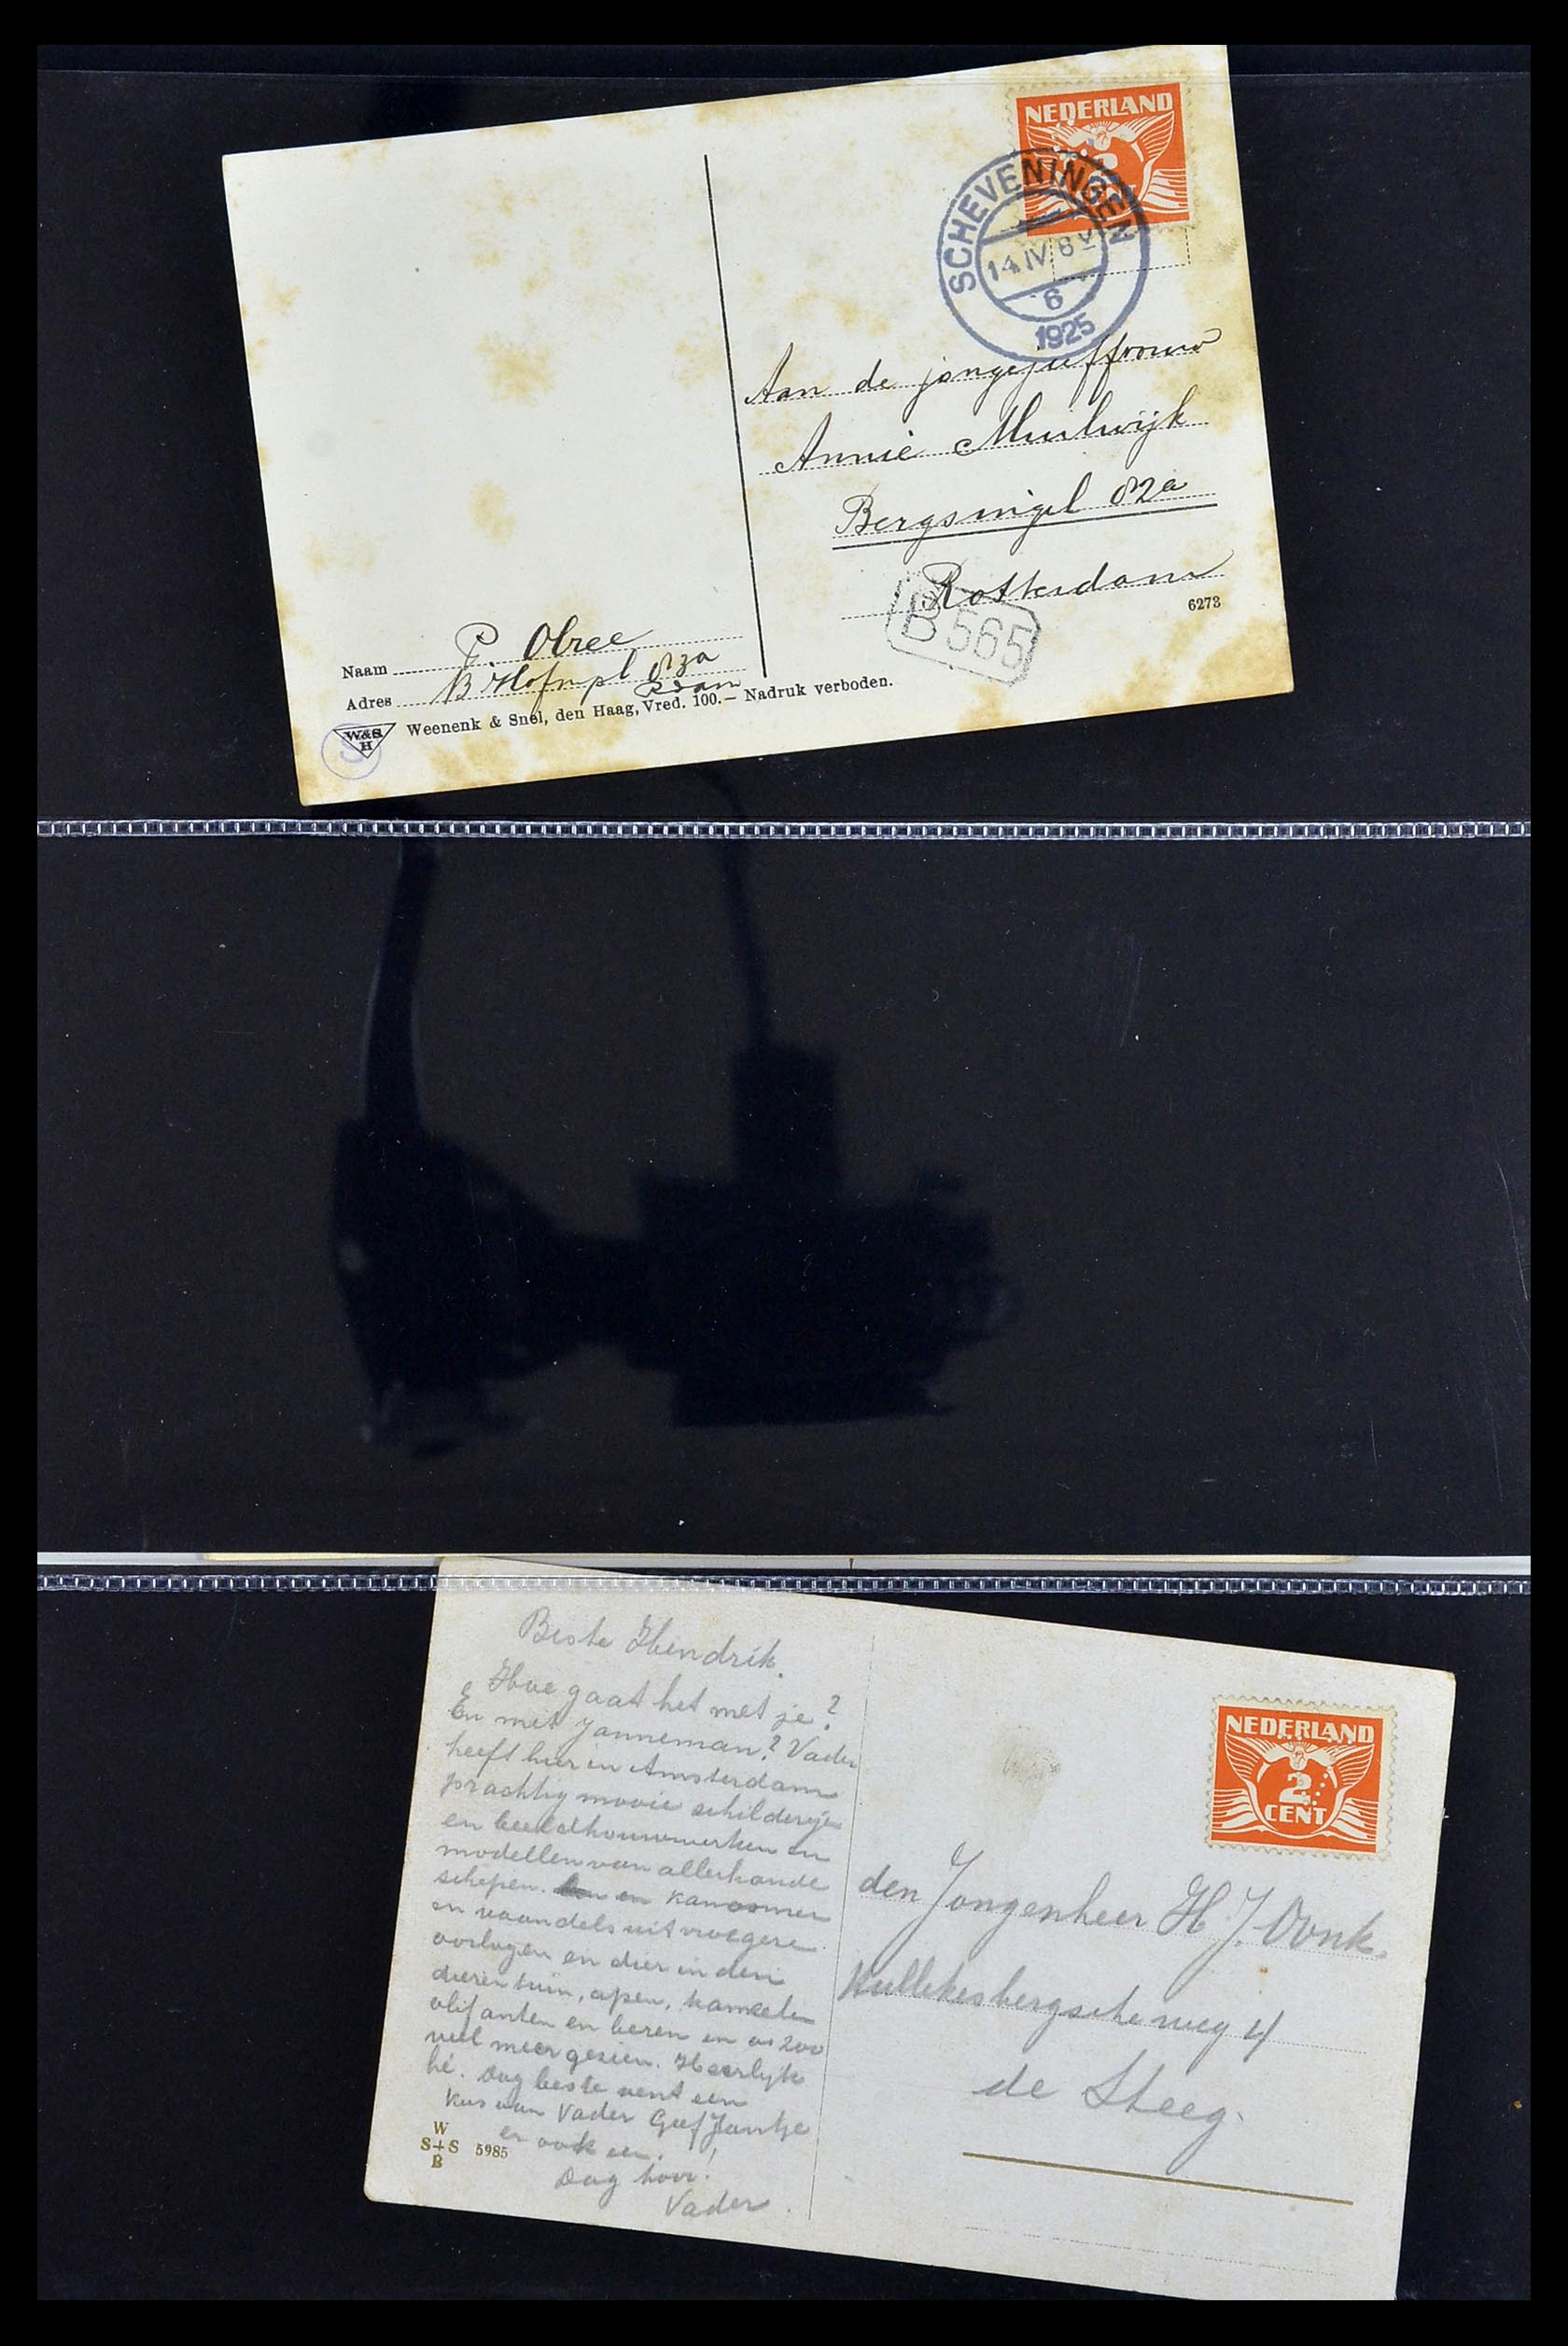 NEDERLAND
SCHEVENINGEN
14 IV 8 V
6
1925
Aan de jongejuffrouw
Annie Muilwijk
Bergsingel 82a
Rotterdam
B 565
6273
Naam P. Obree
Adres 83a
Rdam
W&S
H
Weenenk & Snel, den Haag, Vred. 100.— Nadruk verboden.
Beste Hendrik.
Hoe gaat het met je?
En met Janneman? Vader
heeft hier in Amsterdam
prachtig mooie schilderije
en beeldhouwwerken en
modellen van allerhande
schepen. en kanonnen
en vaandels uit vroegere
oorlogen en dier in den
dierentuin, apen, kameelen
olifanten en beren en zoo
veel meer gezien. Heerlijk
hé. Dag beste vent een
kus van Vader Geef Jantje
er ook een.
Dag hoor!
Vader.
W
S+S 5985
B
NEDERLAND
2
CENT
den Jongenheer H. J. Vonk.
weg 4
de Steeg.